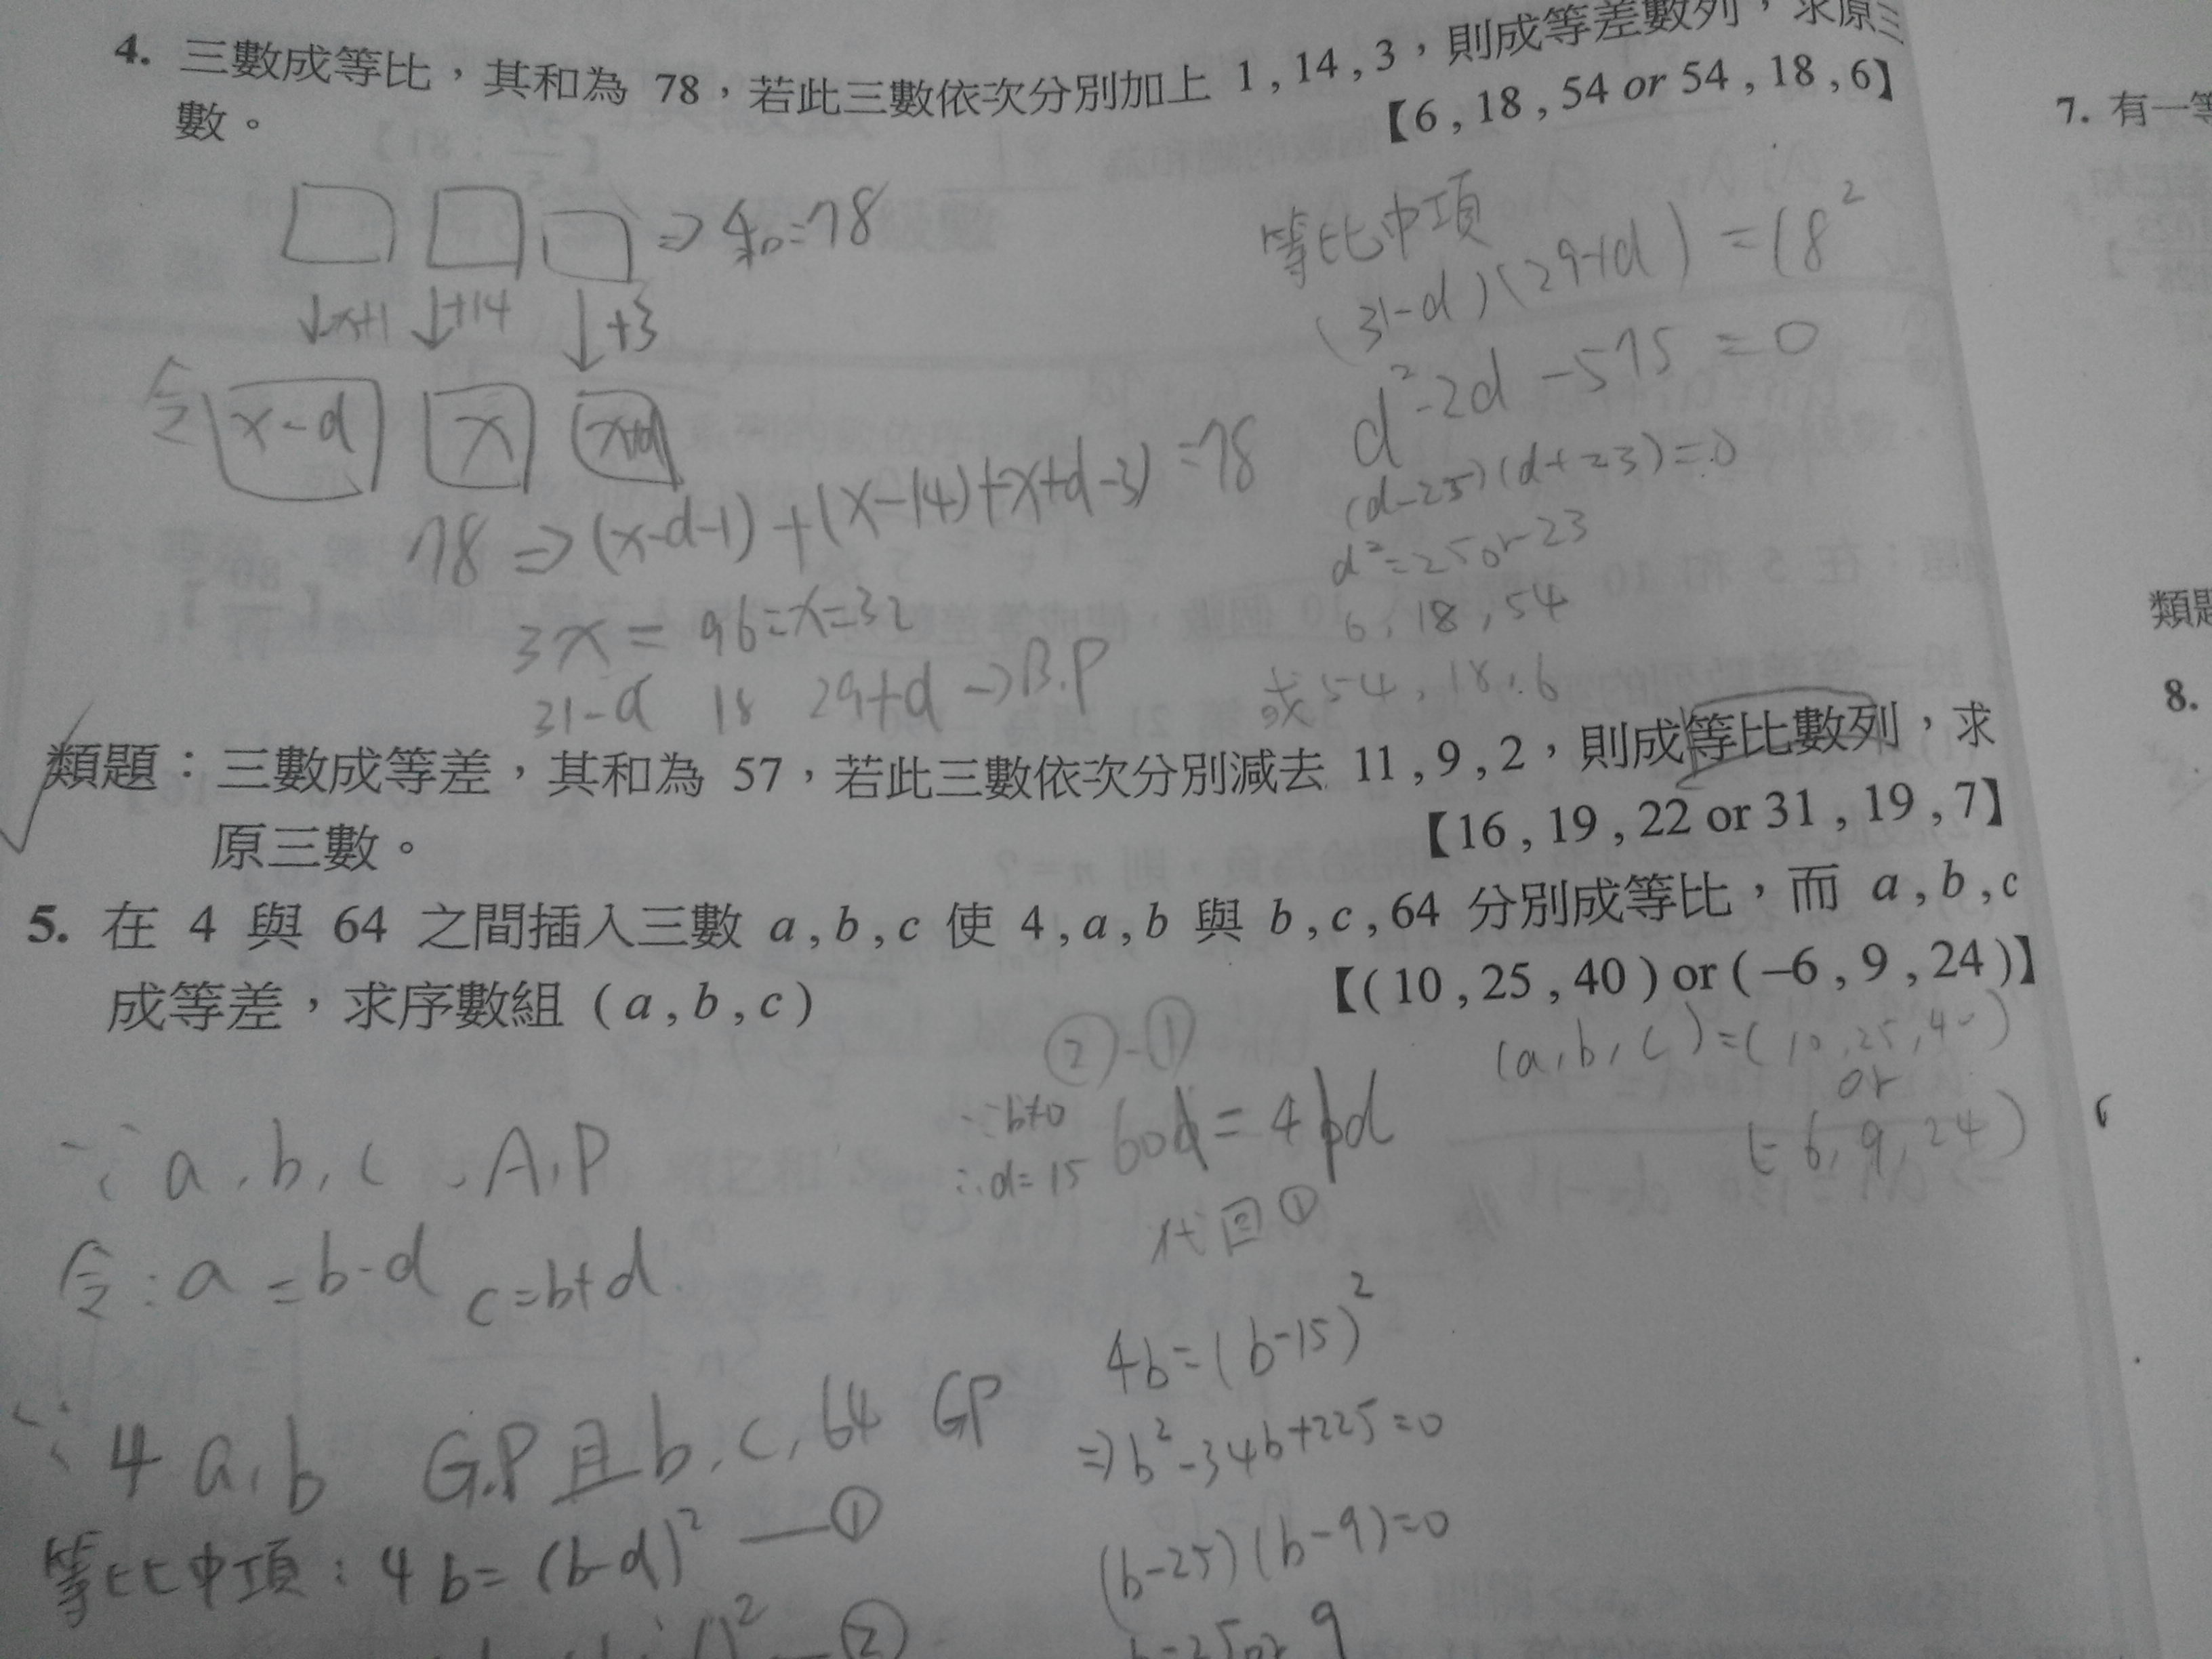 4. 三數成等比，其和為 78，若此三數依次分別加上 1 , 14 , 3，則成等差數列，求原三
數。
【6 , 18 , 54 or 54 , 18 , 6】
=78
↓x+1 ↓+14 ↓+3
令 x-d x x+d
78 ⇒ (x-d-1)+(x-14)+x+d-3)=78
3x = 96 = x=32
31-d 18 29+d →
等比中項
(31-d)(29+d) = 18²
d²-2d-575=0
(d-25)(d+23)=0
d²=25 or -23
6, 18, 54
或 54, 18, 6
類題：三數成等差，其和為 57，若此三數依次分別減去 11 , 9 , 2，則成等比數列，求
原三數。
【16 , 19 , 22 or 31 , 19 , 7】
5. 在 4 與 64 之間插入三數 a , b , c 使 4 , a , b 與 b , c , 64 分別成等比，而 a , b , c
成等差，求序數組 ( a , b , c )
【( 10 , 25 , 40 ) or ( –6 , 9 , 24 )】
∵ a, b, c, A.P
令：a = b-d c=b+d
∵ 4 a, b G.P 且 b, c, 64 GP
等比中項：4b = (b-d)² —①
②
②-①
∵b≠0 60d = 4bd
∴d=15
代回①
4b=(b-15)²
⇒b²-34b+225=0
(b-25)(b-9)=0
b=25 or 9
(a, b, c)=(10, 25, 40)
or
(-6, 9, 24)
7. 有一等
類題
8.